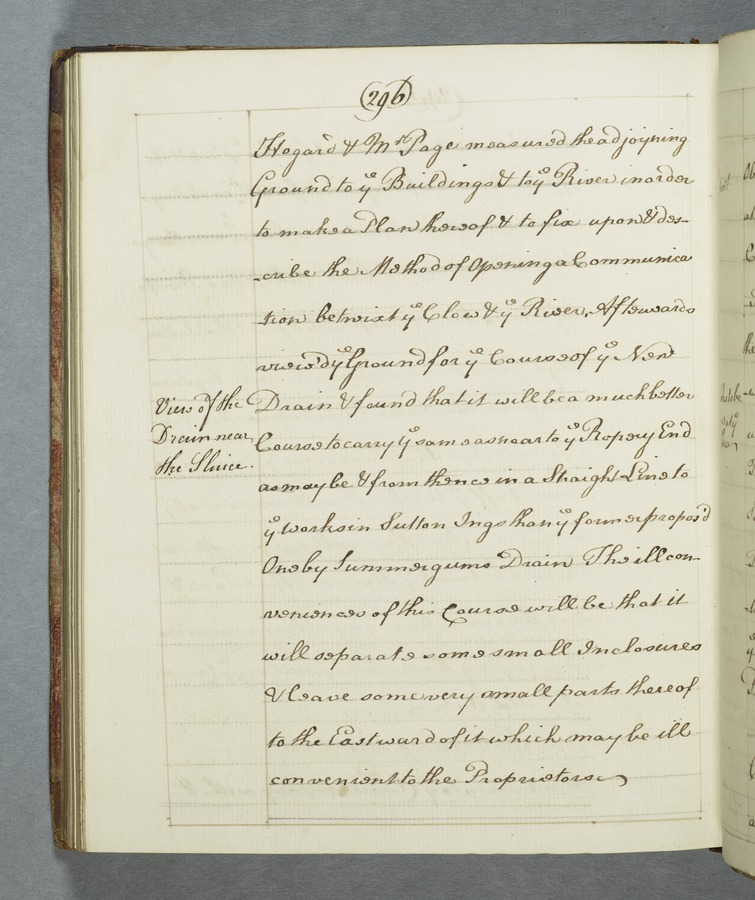 (296)
Hogard & Mr Page measured the adjoyning
Ground to ye Buildings & to ye River in order
to make a Plan hereof & to fix upon & des-
-cribe the Method of Opening a Communica
-tion betwixt ye Clow & ye River, Afterwards
view'd ye Ground for ye Course of ye New
View of the
Drain near
the Sluice.
Drain & found that it will be a much better
Course to carry ye same as near to ye Ropery End
as may be & from thence in a Straight Line to
ye Works in Sutton Ings than ye former propos'd
One by Summergums Drain The ill con-
veniences of this Course will be that it
will separate some small Inclosures
& leave some very small parts thereof
to the Eastward of it which may be ill
convenient to the Proprietors